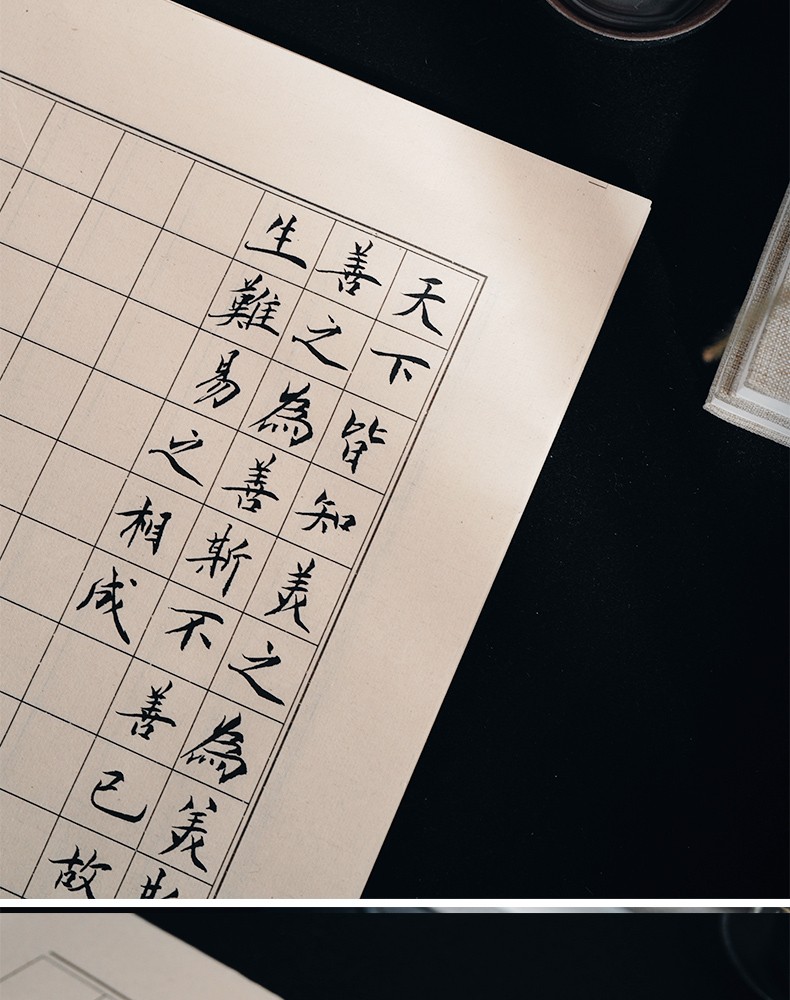 天下皆知美之為美斯
善之為善斯不善已故
生難易之相成